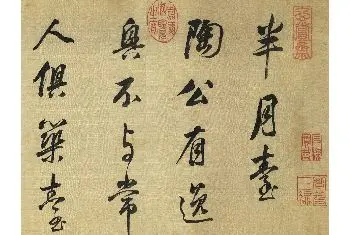 半月臺
陶公有逸
興不与常
人俱築臺